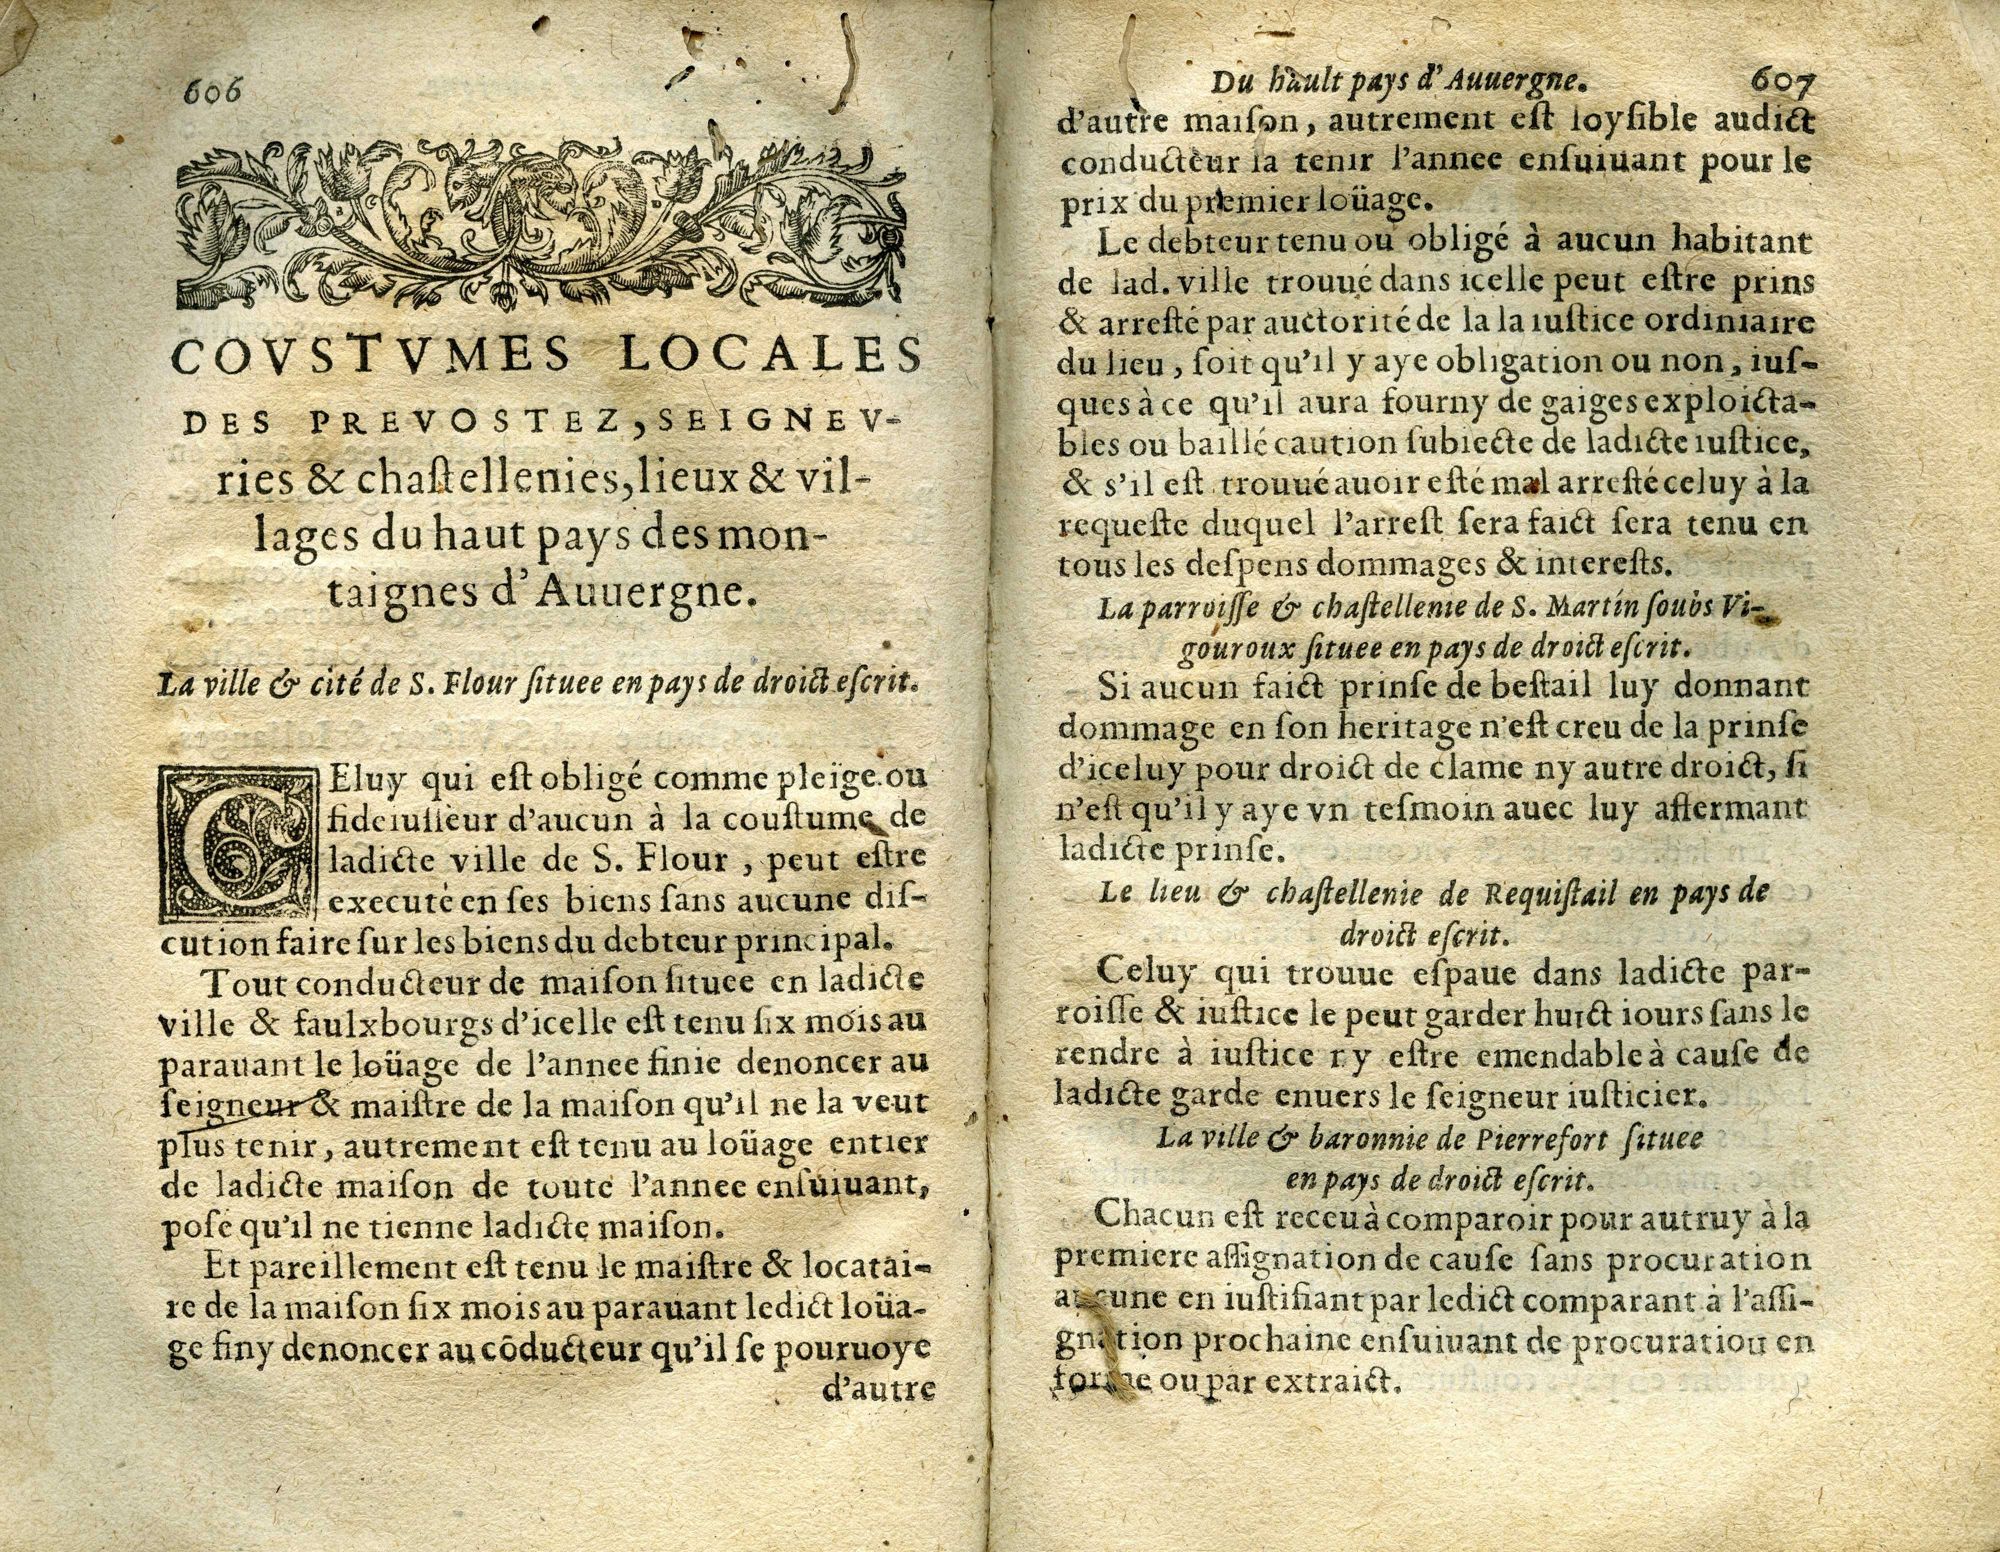 606
COVSTVMES LOCALES
DES PREVOSTEZ, SEIGNEV-
ries & chaſtellenies, lieux & vil-
lages du haut pays des mon-
taignes d'Auuergne.
La ville & cité de S. Flour ſituee en pays de droict eſcrit.
CEluy qui eſt obligé comme pleige ou
fideiuſſeur d'aucun à la couſtume de
ladicte ville de S. Flour, peut eſtre
executé en ſes biens ſans aucune diſ-
cution faire ſur les biens du debteur principal.
Tout conducteur de maiſon ſituee en ladicte
ville & faulxbourgs d'icelle eſt tenu ſix mois au
parauant le loüage de l'annee finie denoncer au
ſeigneur & maiſtre de la maiſon qu'il ne la veut
plus tenir, autrement eſt tenu au loüage entier
de ladicte maiſon de toute l'annee enſuiuant,
poſé qu'il ne tienne ladicte maiſon.
Et pareillement eſt tenu le maiſtre & locatai-
re de la maiſon ſix mois au parauant ledict loüa-
ge finy denoncer au cõducteur qu'il ſe pouruoye
d'autre
Du hault pays d'Auuergne. 607
d'autre maiſon, autrement eſt loyſible audict
conducteur la tenir l'annee enſuiuant pour le
prix du premier loüage.
Le debteur tenu ou obligé à aucun habitant
de lad. ville trouué dans icelle peut eſtre prins
& arreſté par auctorité de la la iuſtice ordiniaire
du lieu, ſoit qu'il y aye obligation ou non, iuſ-
ques à ce qu'il aura fourny de gaiges exploicta-
bles ou baillé caution ſubiecte de ladicte iuſtice,
& s'il eſt trouué auoir eſté mal arreſté celuy à la
requeſte duquel l'arreſt ſera faict ſera tenu en
tous les deſpens dommages & intereſts.
La parroiſſe & chaſtellenie de S. Martin ſoubs Vi-
gouroux ſituee en pays de droict eſcrit.
Si aucun faict prinſe de beſtail luy donnant
dommage en ſon heritage n'eſt creu de la prinſe
d'iceluy pour droict de clame ny autre droict, ſi
n'eſt qu'il y aye vn teſmoin auec luy affermant
ladicte prinſe.
Le lieu & chaſtellenie de Requiſtail en pays de
droict eſcrit.
Celuy qui trouue eſpaue dans ladicte par-
roiſſe & iuſtice le peut garder huict iours ſans le
rendre à iuſtice ny eſtre emendable à cauſe de
ladicte garde enuers le ſeigneur iuſticier.
La ville & baronnie de Pierrefort ſituee
en pays de droict eſcrit.
Chacun eſt receu à comparoir pour autruy à la
premiere aſſignation de cauſe ſans procuration
aucune en iuſtifiant par ledict comparant à l'aſſi-
gnation prochaine enſuiuant de procuration en
forme ou par extraict.